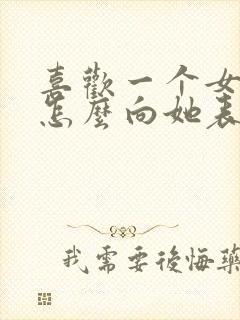 喜歡一个女
怎麼向她表
我需要後悔藥